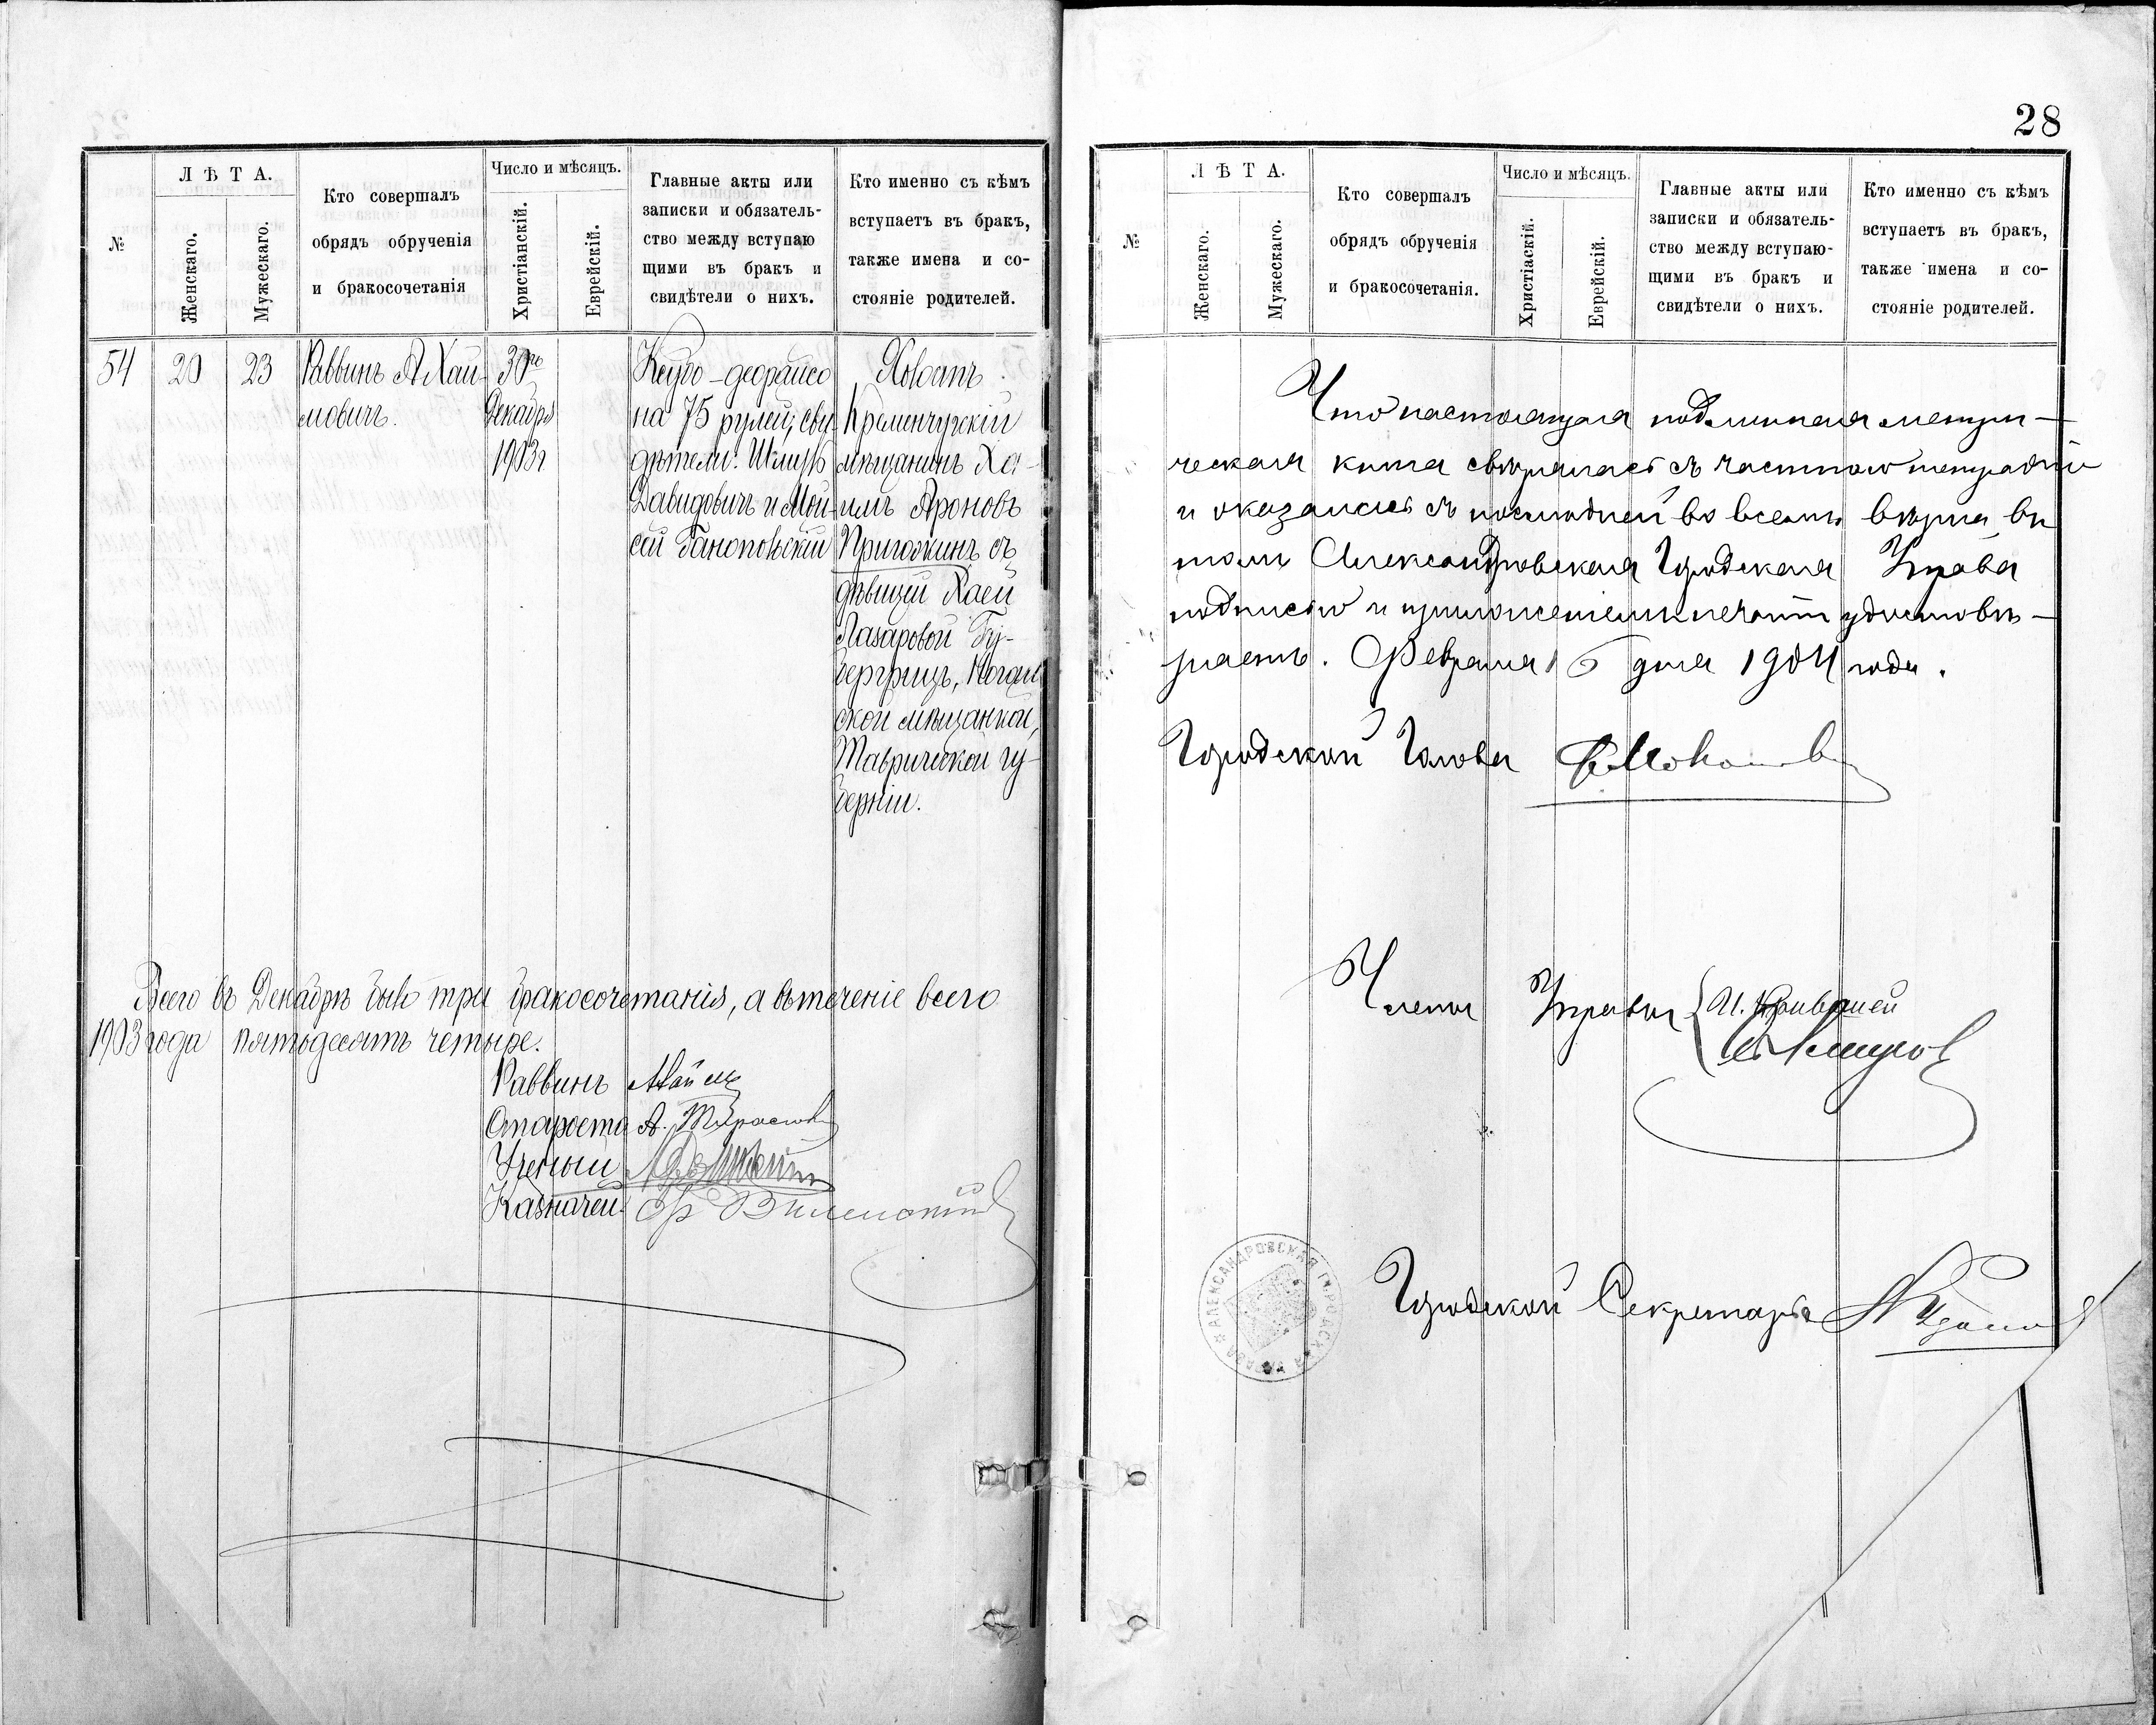 28
№
Л Ѣ Т А.
Женскаго.
Мужескаго.
Кто совершалъ
обрядъ обрученія
и бракосочетанія
Число и мѣсяцъ.
Христіанскій.
Еврейскій.
Главные акты или
записки и обязатель-
ство между вступаю
щими въ бракъ и
свидѣтели о нихъ.
Кто именно съ кѣмъ
вступаетъ въ бракъ,
также имена и со-
стояніе родителей.
54
20
23
Раввинъ А Хай
мовичъ.
30го
Декабря
1903г
на 75 рублей; сви
дѣтели: Шлиомъ
Давидовичъ и Мой
сей
Холостъ
Кременчугскій
мѣщанинъ Ха-
имъ Ароновъ
Пригожинъ съ
дѣвицей Хаей
Лазаровой Гу-
ревичъ, Ногай
ской мѣщанкой,
Таврической гу-
берніи.
Всего въ Декабрѣ было три бракосочетанія, а въ теченіе всего
1903 года пятьдесятъ четыре.
Раввинъ
Староста А.
Ученый
Казначей
№
Л Ѣ Т А.
Женскаго.
Мужескаго.
Кто совершалъ
обрядъ обрученія
и бракосочетанія.
Число и мѣсяцъ.
Христіаскій.
Еврейскій.
Главные акты или
записки и обязатель-
ство между вступаю-
щими въ бракъ и
свидѣтели о нихъ.
Кто именно съ кѣмъ
вступаетъ въ бракъ,
также имена и со-
стояніе родителей.
Что настоящая подлинная метри-
ческая книга свѣрялась съ частною тетрадью
и оказалась съ послѣдней во всемъ вѣрна, въ
томъ Александровская Городская Управа
подписью и приложеніемъ печати удостовѣ-
ряетъ. Февраля 6 дня 1904 года.
Городской Голова
Члены Управы
Городской Секретарь
АЛЕКСАНДРОВСКАЯ ГОРОДСКАЯ УПРАВА